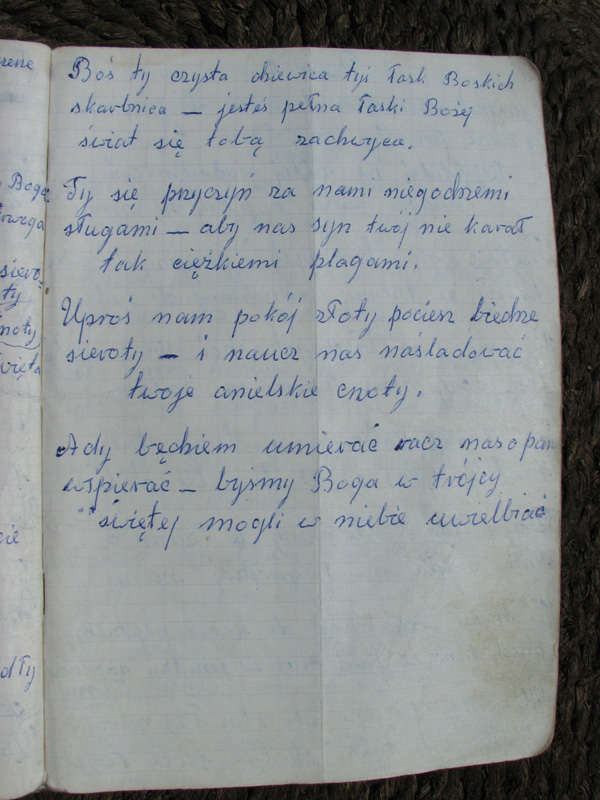 Boś ty czysta dziewica tyś łask Boskich
skarbnica – jesteś pełna łaski Bożej
świat się tobą zachwyca.
Ty się przyczyń za nami niegodnemi
sługami – aby nas syn twój nie karał
tak ciężkiemi plagami.
Uproś nam pokój złoty pociesz biedne
sieroty – i naucz nas naśladować
twoje anielskie cnoty.
Ady będziem umierać racz nas o pani
wspierać – byśmy Boga w trójcy
świętej mogli w niebie uwielbiać